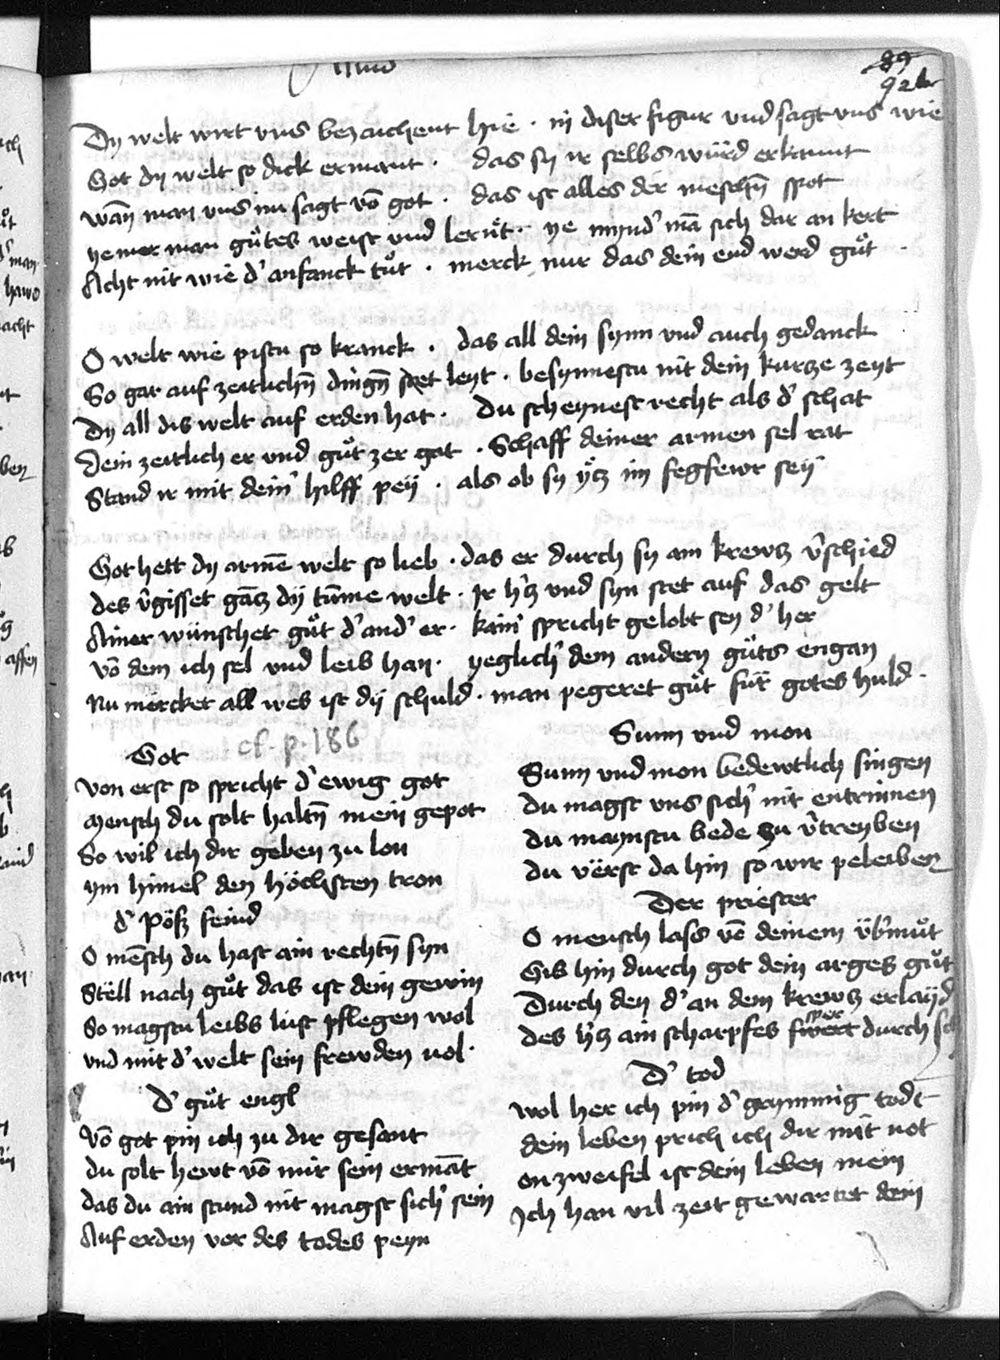 89
92
Dy welt wirt vns bezaichent hie · in diser figur vnd sagt vns wie
Got dy welt so dick ermant · das sy ir selbs würd erkannt
wan̄ man vns nu sagt vō got · das ist alles der mēschn̄ spot
ye mer man gůtes weist vnd lernt · ye mynd' mā sich dar an kert
Acht nit wie d' anfanck tůt · merck nur das dein end werd gůt
O welt wie pistu so kranck · das all dein synn vnd auch gedanck
So gar auf zeitlichn̄ dingn̄ stet leyt · besynnestu nit dein kurtze zeyt
Dy all dis welt auf erden hat · Du scheynest recht als d' schat
Dein zeitlich er vnd gůt zer gat · Schaff deiner armen sel rat
Stand ir mit dein' hilff peÿ · als ob sy ytz im fegfewr seÿ
Got hett dy armē welt so lieb · das er durch sy am krewtz v'schied
des v'gisset gātz dÿ tūme welt · Ir h'tz vnd syn stet auf das gelt
Ainer wünschet gůt d' and' er · kain' spricht gelobt sey d' her
vō dem ich sel vnd leib han · yeglich' dem andern gůts engan
Nu mercket all wes ist dÿ schuld · man pegeret gůt für gotes huld ·
Got
cf. p. 186
von erst so spricht d' ewig got
mensch du solt haltn̄ mein gepot
So wil ich dir geben zu lon
ym himel den höchsten tron
d' pöß feind
O mēsch du hast ain rechtn̄ syn
Stëll nach gůt das ist dein gewin
So magstu leibs lust pflegen wol
vnd mit d' welt sein frewden vol ·
d' gůt engl
Vō got pin ich zu dir gesant
du solt hewt vō mir sein ermāt
das du ain stund nit magst sich' sein
Auf erden vor des todes peyn
Sunn vnd mon
Sunn vnd mon bedewtlich singen
du magst vns sich' nit entrinnen
du maynstu bede zu v'treyben
du verst da hin so wir peleiben
Der priester
O mensch lass vō deinem vb'můt
Gib hin durch got dein arges gůt
Durch den d' an dem krewtz erlayd
des h'tz ain scharpfes sper durch
D' tod
wol her ich pin d' grymmig todt
dein leben prich ich dir mit not
on zweifel ist dein leben mein
Ich han vil zeit gewartet dein